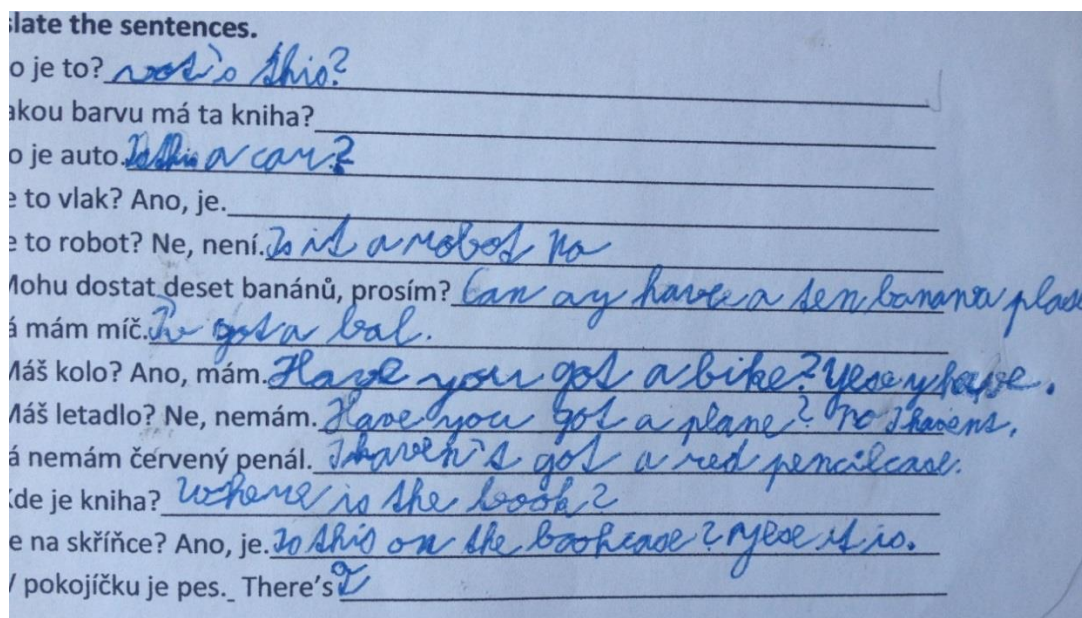 slate the sentences.
o je to? wot's this?
akou barvu má ta kniha?
o je auto. Is this a car?
e to vlak? Ano, je.
e to robot? Ne, není. Is it a robot No
Mohu dostat deset banánů, prosím? Can ay have a ten banana plas
á mám míč. I'v got a bal.
Máš kolo? Ano, mám. Have you got a bike? Yese y have.
Máš letadlo? Ne, nemám. Have you got a plane? No I havent.
á nemám červený penál. I haven's got a red pencilcase.
Kde je kniha? Where is the book?
e na skříňce? Ano, je. Is this on the bookcase? Yese it is.
V pokojíčku je pes. There's